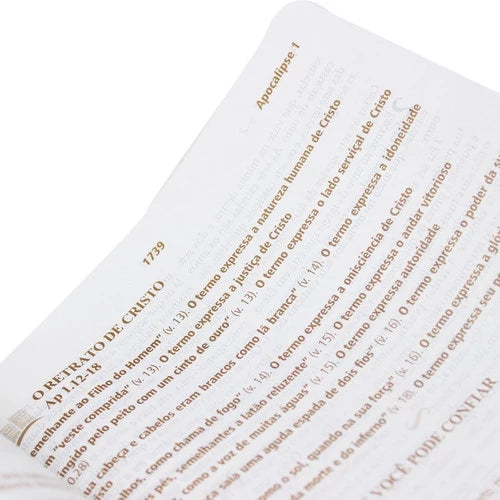 Apocalipse 1
1739
O RETRATO DE CRISTO
Ap 1.12-18
emelhante ao Filho do Homem" (v. 13). O termo expressa a natureza humana de Cristo
m "veste comprida" (v. 13). O termo expressa a justiça de Cristo
ingido pelo peito com um cinto de ouro" (v. 13). O termo expressa o lado serviçal de Cristo
ua cabeça e cabelos eram brancos como lã branca" (v. 14). O termo expressa a idoneidade
0.28)
olhos, como chama de fogo" (v. 14). O termo expressa a onisciência de Cristo
s pés, semelhantes a latão reluzente" (v. 15). O termo expressa o andar vitorioso
como a voz de muitas águas" (v. 15). O termo expressa autoridade
ca saía uma aguda espada de dois fios" (v. 16). O termo expressa o poder da sua
omo o sol, quando na sua força" (v. 16). O termo expressa a glór
da morte e do inferno" (v. 18). O termo expressa seu
OCÊ PODE CONFIAR